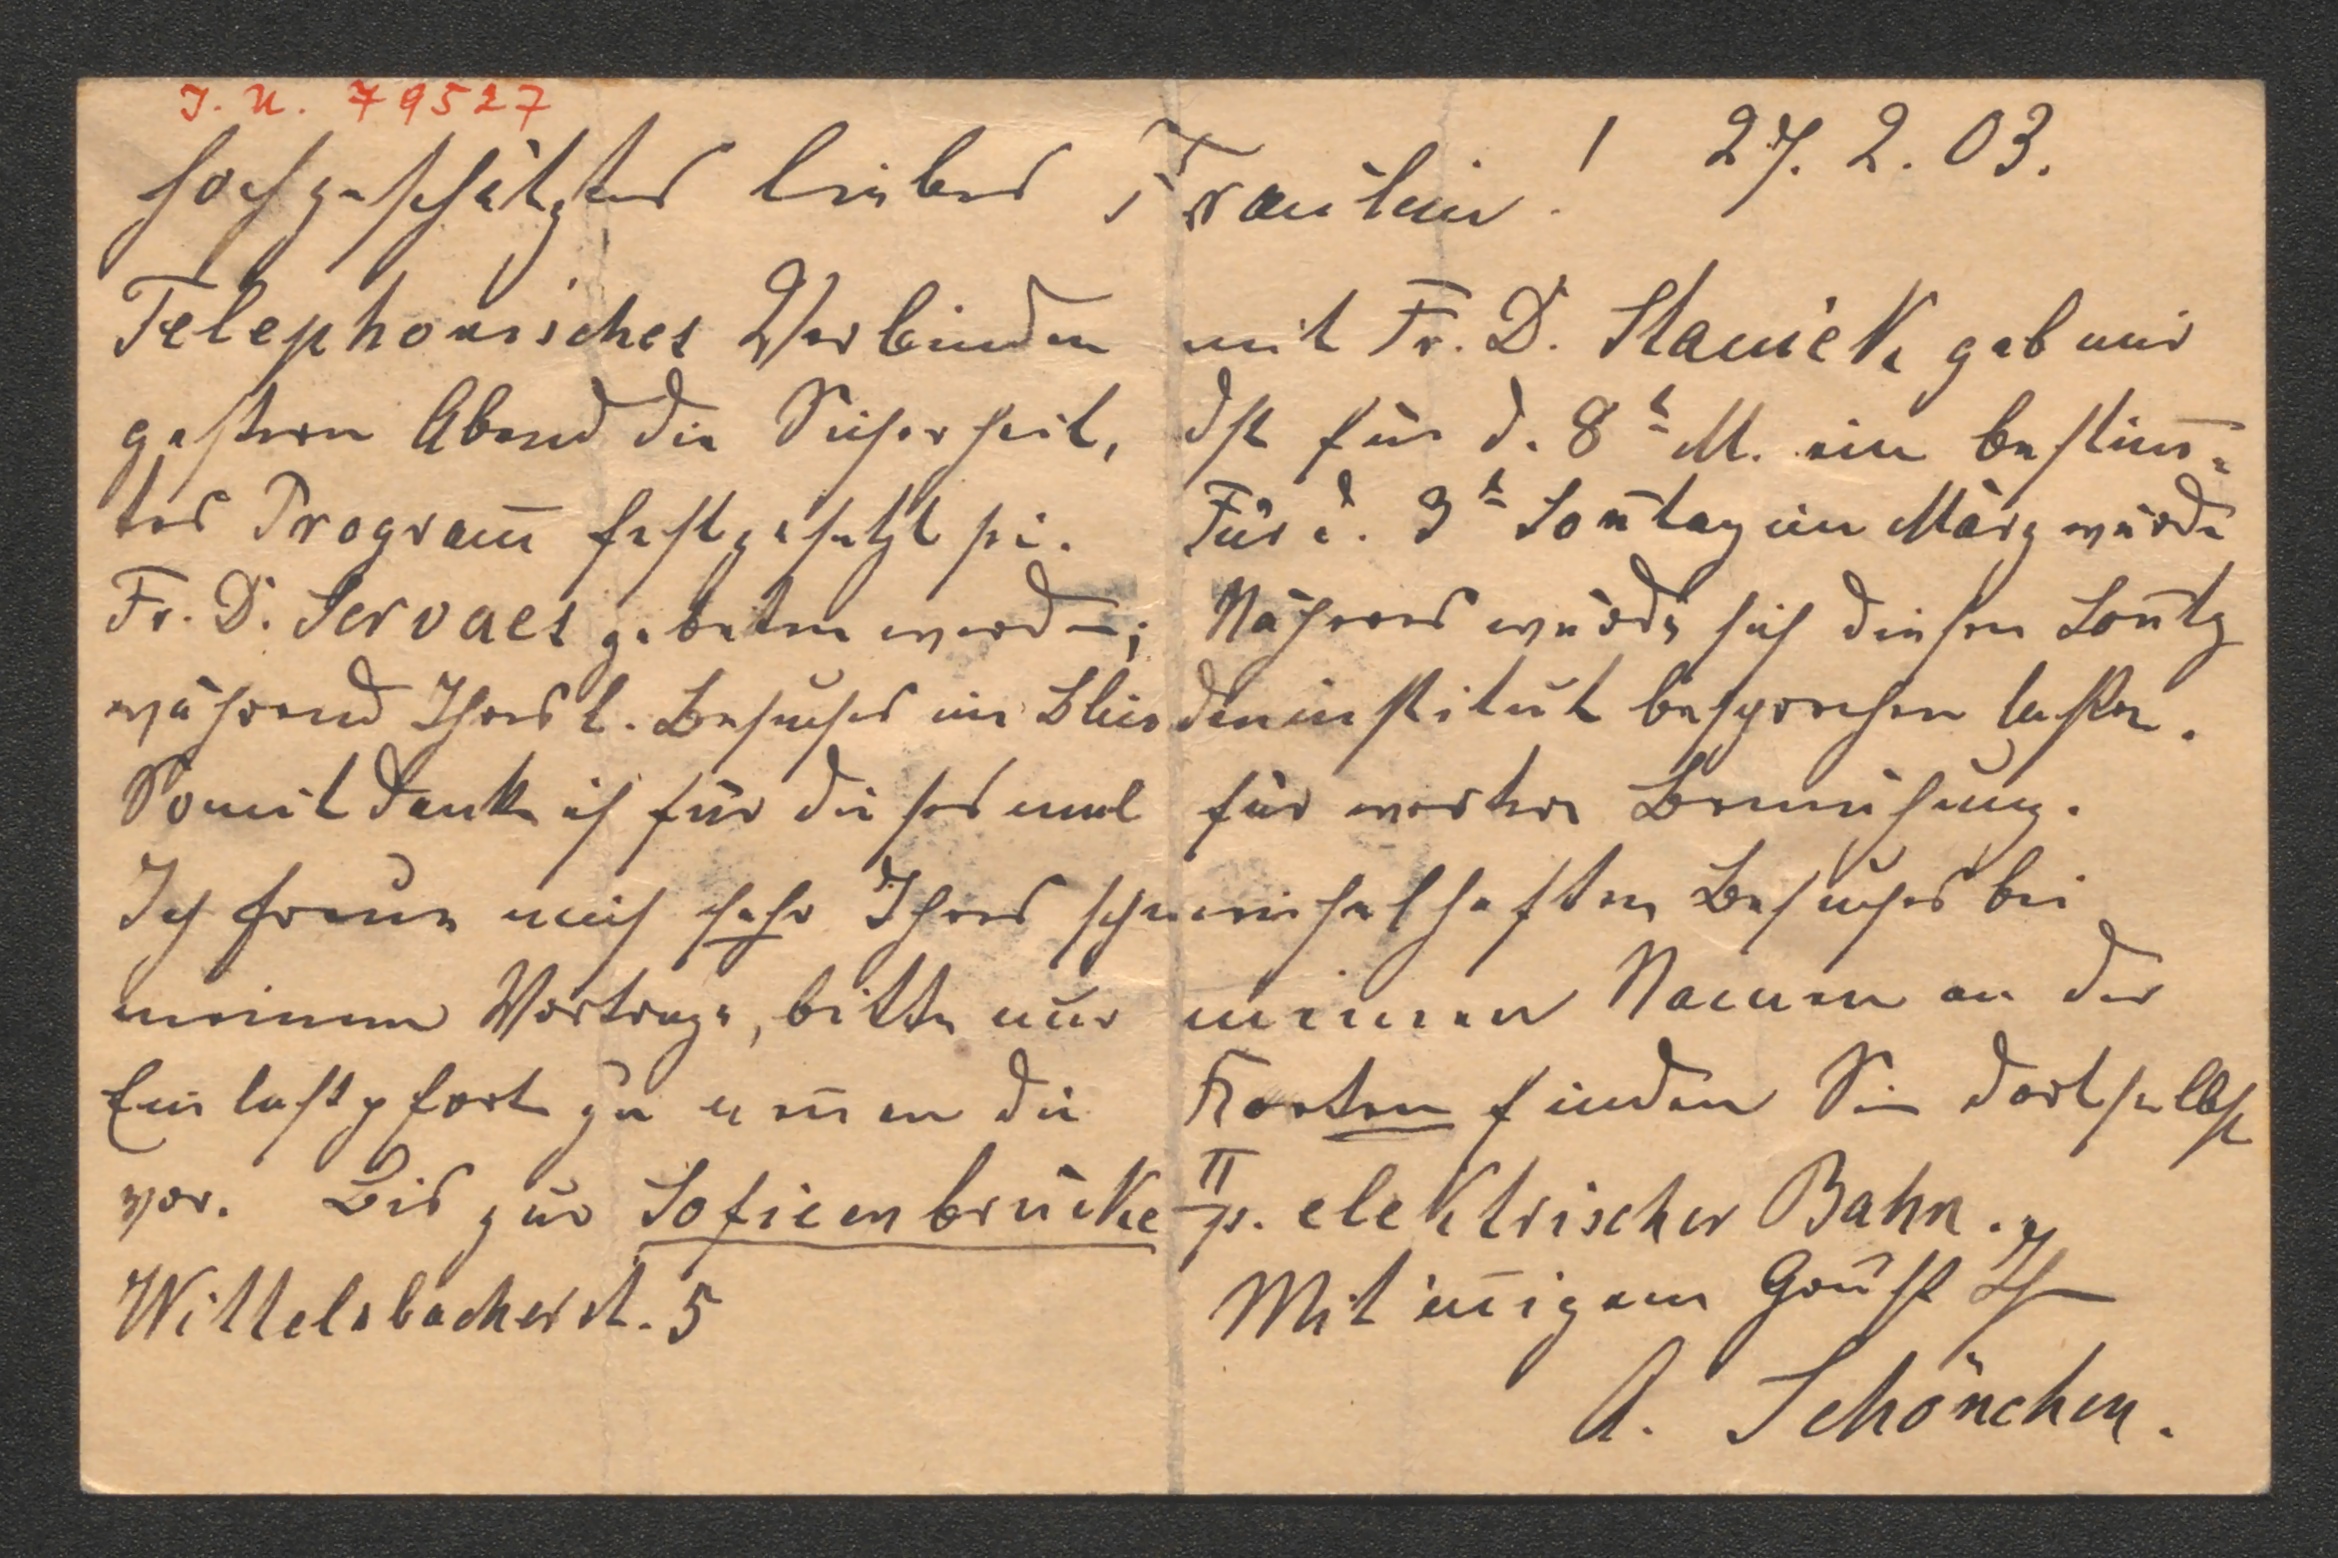 J. N. 79527
Hochgeschätztes liebes Fräulein! 27. 2. 03.
Telephonisches Verbinden mit Fr. D. Stanick gab mir
gestern Abend die Sicherheit, dß für d. 8t M. ein bestim̅-
tes Program̅ festgesetzt sei. Für d. 3t Son̅tag im März würde
Fr. D. Servaes gebeten werden; Näheres würde sich diesen Son̅tg
während Ihres l. Besuches im Blindeninstitut besprechen lassen.
Somit danke ich für diesesmal für werthe Bemühung.
Ich freue mich sehr Ihres schmeichelhaften Besuches bei
meinem Vortrage, bitte nur meinen Namen an der
Einlaßpforte zu nen̅en die Karten finden Sie dortselbst
vor. Bis zur Sofienbrücke p. elektrischer Bahn.
II
Wittelsbacherst. 5 Mit in̅igem Gruß Ih
A. Schönchen.